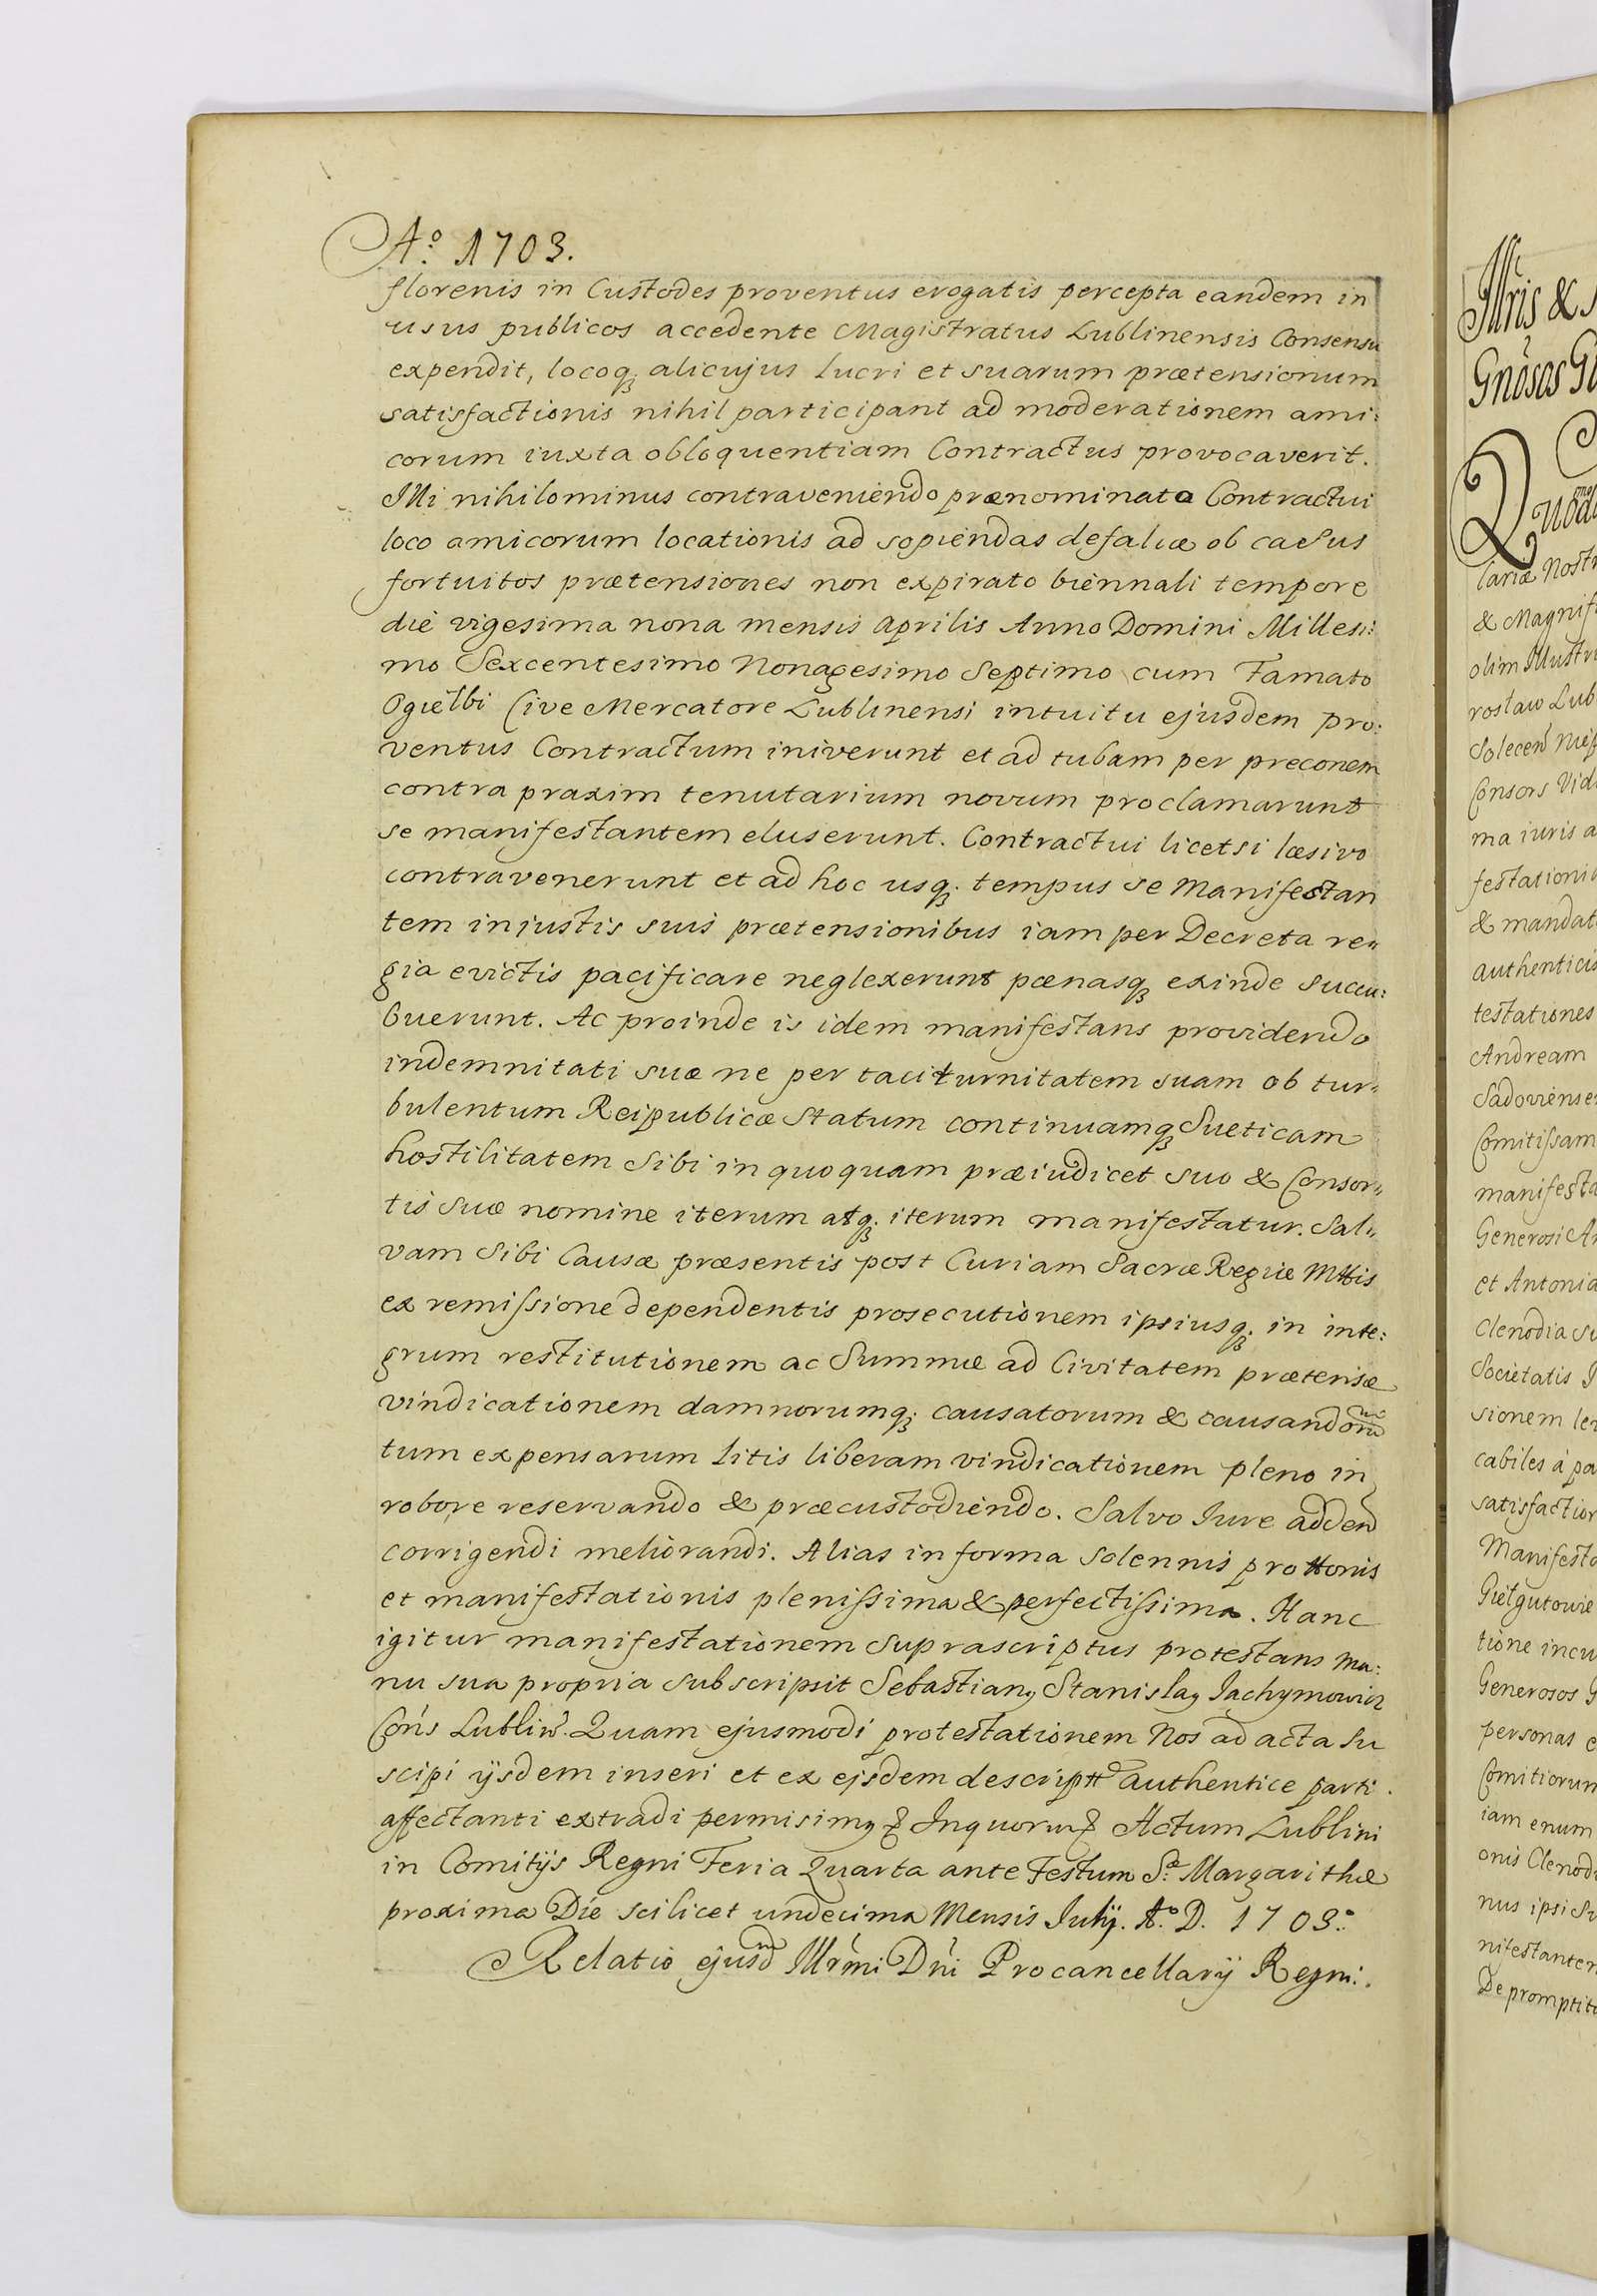 Aº. 1703.
florenis in Custodes proventus erogatis percepta eandem in
usus publicos accedente Magistratus Lublinensis Consensu
expendit, locoq; alicujus lucri et suarum prætensionum
satisfactionis nihil participant ad moderationem ami:
corum iuxta obloquentiam Contractus provocaverit.
Illi nihilominus contraveniendo prænominato Contractui
loco amicorum locationis ad sopiendas defalcæ ob casus
fortuitos prætensiones non expirato biennali tempore
die vigesima nona mensis Aprilis Anno Domini Millesi:
mo Sexcentesimo Nonagesimo Septimo cum Famato
Ogielbi Cive Mercatore Lublinensi intuitu ejusdem pro:
ventus Contractum iniverunt et ad tubam per preconem
contra praxim tenutarium novum proclamarunt
se manifestantem eluserunt. Contractui licetsi læsivo
contravenerunt et ad hoc usq; tempus se Manifestan
tem injustis suis prætensionibus iam per Decreta re„
gia evictis pacificare neglexerunt pœnasq; exinde succu:
buerunt. Ac proinde is idem manifestans providendo
indemnitati suæ ne per taciturnitatem suam ob tur„
bulentum Reipublicæ Statum continuamq; Sueticam
hostilitatem Sibi in quoquam præiudicet suo & Consor„
tis suæ nomine iterum atq; iterum manifestatur. Sal„
vam Sibi Causæ præsentis post Curiam Sacræ Regiæ Mttis
ex remissione dependentis prosecutionem ipsiusq; in inte:
grum restitutionem ac Summæ ad Civitatem prætensæ
vindicationem damnorumq; causatorum & causandorum
tum expensarum litis liberam vindicationem pleno in
robore reservando & præcustodiendo. Salvo Iure addend
corrigendi meliorandi. Alias in forma solennis prottonis
et manifestationis plenissima & perfectissima. Hanc
igitur manifestationem suprascriptus protestans ma:
nu sua propria subscripsit Sebastian9 Stanisla9 Jachymowicz
Cons Lublin. Quam ejusmodi protestationem Nos ad acta su
scipi ijsdem inseri et ex ejsdem descriptt authentice parti
affectanti extradi permisim9 & Inquorum & Actum Lublini
in Comitijs Regni Feria Quarta ante Festum S. Margarithæ
proxima Die scilicet undecima Mensis Julij. A.º D. 1703.º
Relatio ejusdm Illrmi Dni Procancellarij Regni.
Illris &
Gnosos
lariæ Nost
& Magnif
olim Illustr
roslaw Lub
Consors Vid
ma iuris a
festationi
& mandat
authenticis
testationes
Andream
Sadoviense
Comitissam
manifesta
Generosi
et Antonia
Clenodia su
Societatis
sionem le
cabiles à pa
satisfaction
Manifesta
Gielgutowie
tione incu
Generosos
personas
Comitiorum
iam enum
onis Clenod
nus ipsi
nifestanter
De prompti